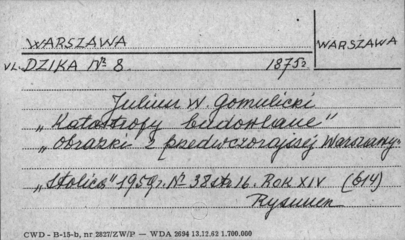 WARSZAWA
WARSZAWA
ul. DZIKA Nr 8. 1875r.
Juliusz W. Gomulicki
"Katastrofy budowlane"
"Obrazki z przedwczorajszej Warszawy."
"Stolica" 1959r. Nr 38 str 16. ROK XIV (614)
Rysunek
CWD - B-15-b, nr 2827/ZW/P — WDA 2694 13.12.62 1.700.000